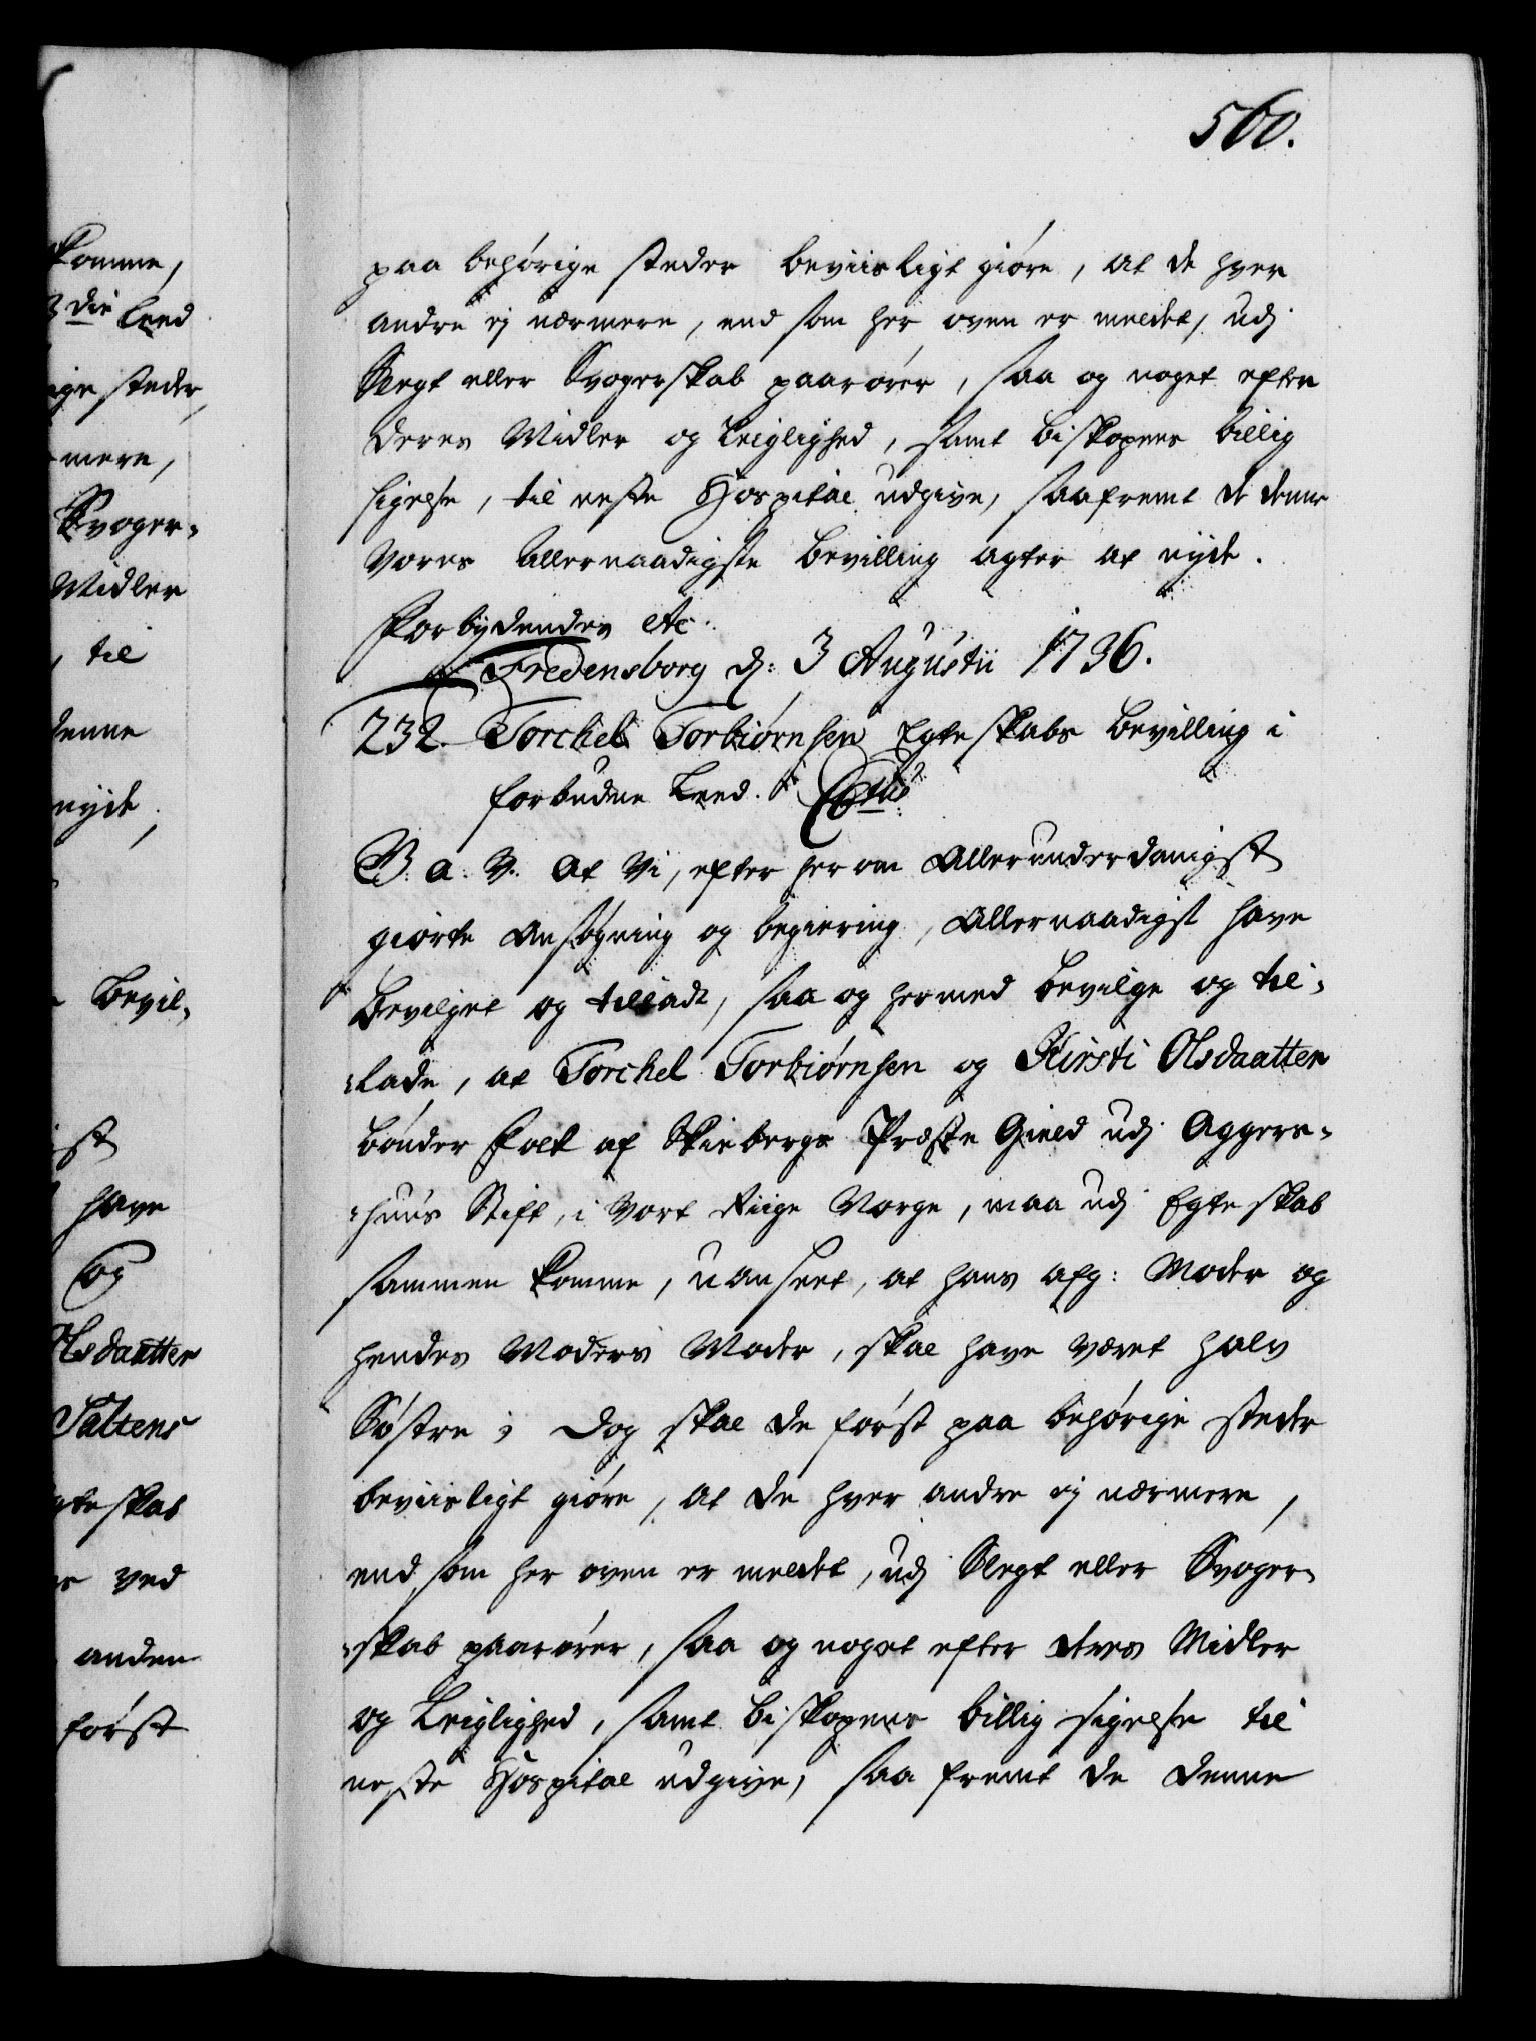 560.
komme,
3die Leed
ige steder,
mere,
Svoger-
Midler
, til
denne
nyde.
Bevil-
ist
have
og
Olsdaatter
Saltens
gteskab
ved
anden
först
paa behörige steder beviisligt giöre, at de hver
andre ej nærmere, end som her oven er meldet, udj
Slegt eller Svogerskab paarörer, saa og noget efter
deres Midler og Leiglighed, samt Biskopens billig
sigelse, til neste Hospital udgive, saafremt de denne
Vores Allernaadigste Bevilling agter at nyde.
Forbydendes etc.
Fredensborg d: 3 Augustii 1736.
232. Torchel Torbiörnsen Egteskabs Bevilling i
forbudne Leed.
B. a. V. At Vi, efter herom Allerunderdanigst
giorte Ansögning og begiering, Allernaadigst have
Bevilget og tilladt, saa og hermed Bevilge og til-
lade, at Torchel Torbiörnsen og Kirsti Olsdaatter
Bönder Folk af Skiebergs Præste Gield udj Aggers-
huus Stift, i Vort Riige Norge, maa udj Egteskab
sammen komme, uanseet, at hans afg: Moder og
hendes Moders Moder, skal have været halv
Söstre; Dog skal de först paa behörige steder
beviisligt giöre, at de hver andre ej nærmere,
end som her oven er meldet, udj Slegt eller Svoger-
skab paarörer, saa og noget efter deres Midler
og Leiglighed, samt Biskopens billig sigelse til
neste Hospital udgive, saa fremt de denne